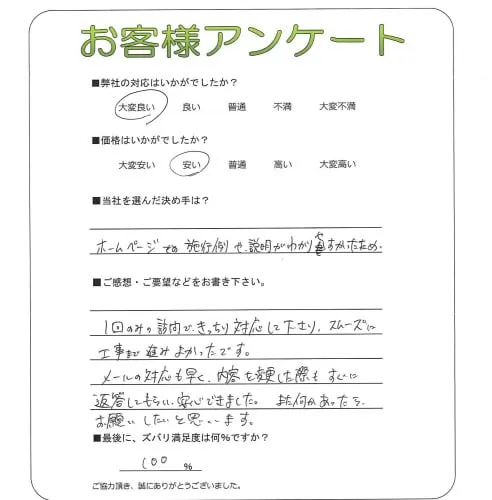 お客様アンケート
■弊社の対応はいかがでしたか?
大変良い 良い 普通 不満 大変不満
■価格はいかがでしたか?
大変安い 安い 普通 高い 大変高い
■当社を選んだ決め手は?
ホームページでの施行例や、説明がわかりやすかったため.
■ご感想・ご要望などをお書き下さい。
1回のみの訪問で、きっちり対応して下さり、スムーズに
工事まで進みよかったです。
メールの対応も早く、内容を変更した際もすぐに
返答してもらい、安心できました。また何かあったら、
お願いしたいと思います。
■最後に、ズバリ満足度は何%ですか?
100 %
ご協力頂き、誠にありがとうございました。